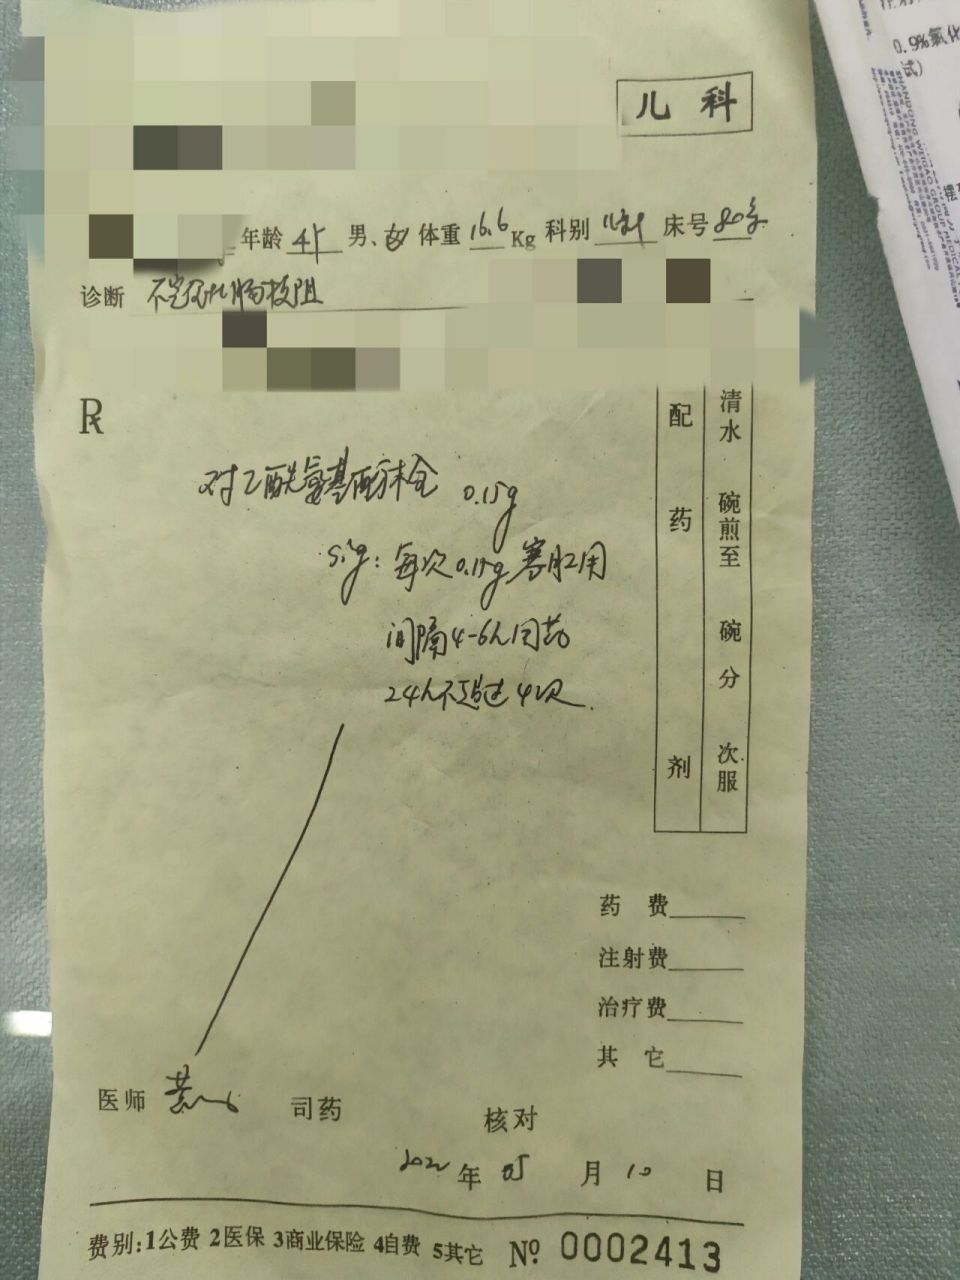 儿科
年龄 4岁 男、女 体重 16.6 Kg 科别 床号
诊断 不完全性肠梗阻
R
对乙酰氨基酚栓 0.15g
Sig: 每次0.15g 塞肛用
间隔4-6h 用药
24h不超过4次.
配药剂
清水 碗煎至 碗 分 次服
药费
注射费
治疗费
其它
医师 黄 司药 核对
2022年 05 月 10 日
费别:1公费 2医保 3商业保险 4自费 5其它 No 0002413
0.9%氯化
试)